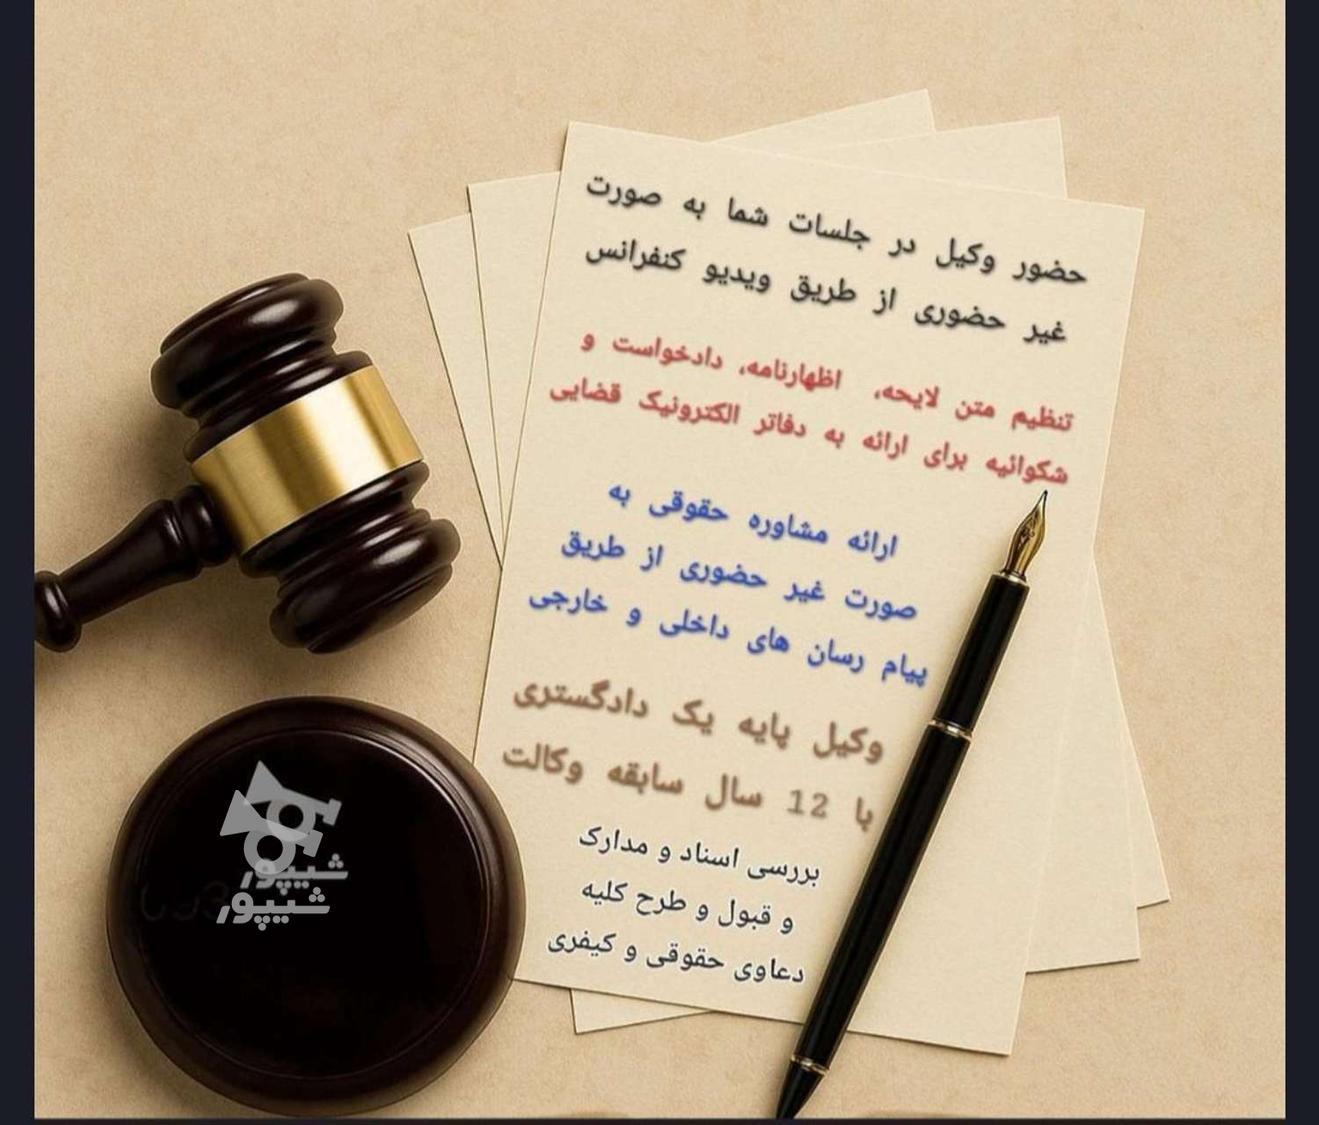 حضور وکیل در جلسات شما به صورت
غیر حضوری از طریق ویدیو کنفرانس
تنظیم متن لایحه، اظهارنامه، دادخواست و
شکوائیه برای ارائه به دفاتر الکترونیک قضایی
ارائه مشاوره حقوقی به
صورت غیر حضوری از طریق
پیام رسان های داخلی و خارجی
وکیل پایه یک دادگستری
با 12 سال سابقه وکالت
بررسی اسناد و مدارک
و قبول و طرح کلیه
دعاوی حقوقی و کیفری
شیپور
شیپور